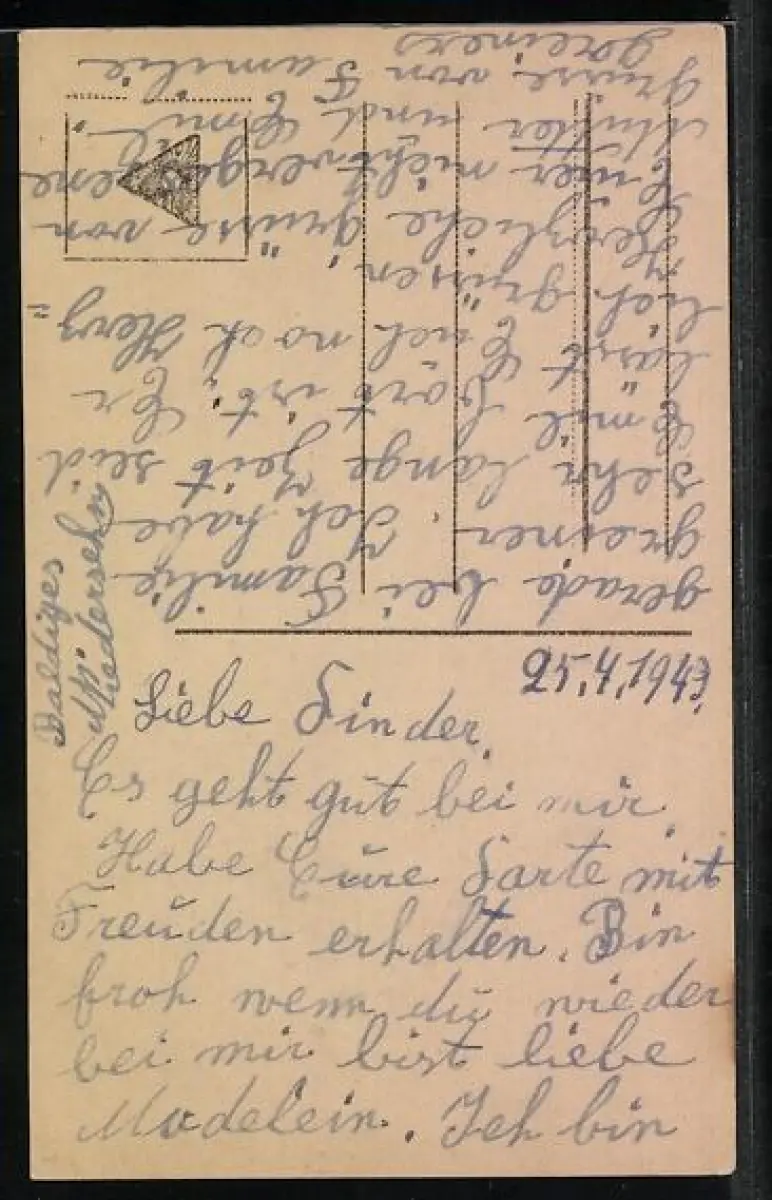 25.4.1943.
Liebe Kinder.
Es geht gut bei mir.
Habe Eure Karte mit
Freuden erhalten. Bin
froh wenn du wieder
bei mir bist liebe
Madelein. Ich bin
gerade bei Familie
greiner. Ich habe
sehr lange Zeit seid
Emil fort ist. Er
lässt Euch noch Herz=
lich grüsen,
Herzliche grüsse von
Euer nicht
Mutter und Emil
grüse von Familie
greiners
Baldiges
Wiedersehn